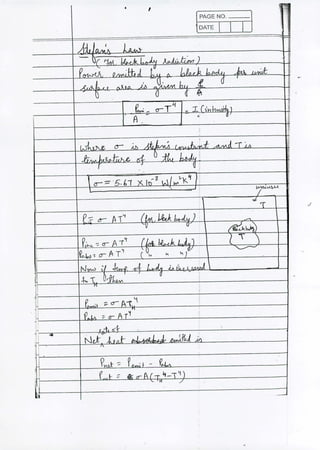 PAGE NO.
DATE
Stefan's Law
(In black body radiation)
Power emitted by a black body per unit
surface area is given by P/A
P/A = σT⁴ = I (intensity)
where σ is stefan's constant and T is
temperature of the body.
σ = 5.67 X 10⁻⁸ W/m²K⁴
T
Black body
T
P = σ AT⁴ (for black body)
σ AT⁴ (for black body)
Pabs = σ AT⁴ ( " " " )
Now if temp. of body is increased
to T_H then
Pemit = σ AT_H⁴
Pabs = σ AT⁴
rate of
Net heat emitted is
Pnet = Pemit - Pabs
Pnet = σA(T_H⁴-T⁴)